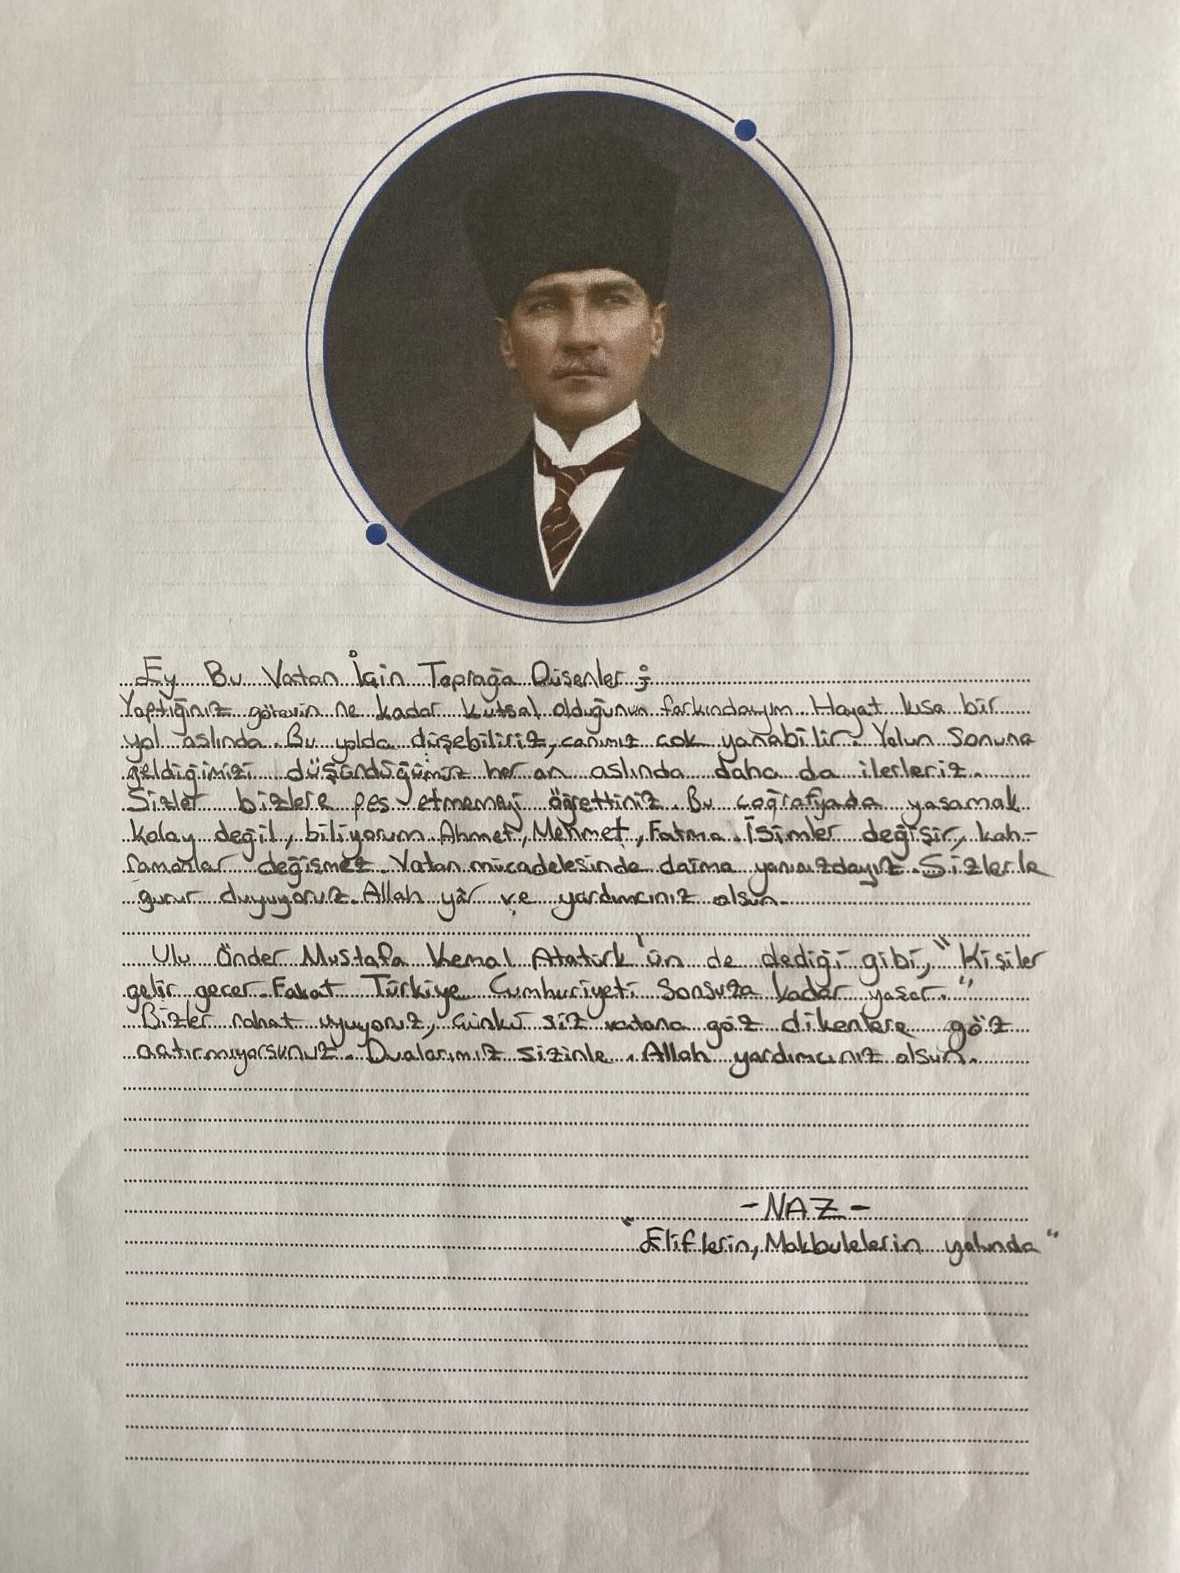 Ey Bu Vatan İçin Toprağa Düşenler ;
Yaptığınız görevin ne kadar kutsal olduğunun farkındayım. Hayat kısa bir
yol aslında. Bu yolda düşebiliriz, canımız çok yanabilir. Yolun sonuna
geldiğimizi düşündüğümüz her an aslında daha da ilerleriz.
Sizler bizlere pes etmemeyi öğrettiniz. Bu coğrafyada yaşamak
kolay değil, biliyorum Ahmet, Mehmet, Fatma. İsimler değişir, kah-
ramanlar değişmez. Vatan mücadelesinde daima yanınızdayız. Sizlerle
gurur duyuyoruz. Allah yâr ve yardımcınız olsun.
Ulu Önder Mustafa Kemal Atatürk'ün de dediği gibi, "Kişiler
gelir geçer. Fakat Türkiye Cumhuriyeti Sonsuza kadar yaşar."
Bizler rahat uyuyoruz, çünkü siz vatana göz dikenlere göz
açtırmıyorsunuz. Dualarımız sizinle. Allah yardımcınız olsun.
-NAZ-
"Eliflerin, Makbulelerin yolunda"